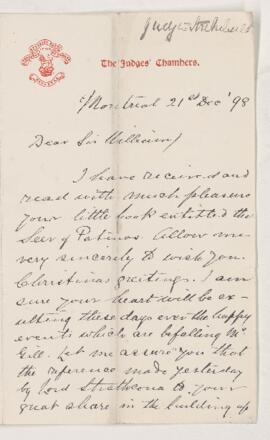 Judge Archibald
The Judges' Chambers.
Montreal 21st Dec' 98
Dear Sir William,
I have received and
read with much pleasure
your little book entitled the
Seer of Patmos. Allow me
very sincerely to wish you
Christmas greetings. I am
sure your heart will be ex-
ulting these days over the happy
events which are befalling Mc
Gill. Let me assure you that
the reference made yesterday
by Lord Strathcona to your
great share in the building up